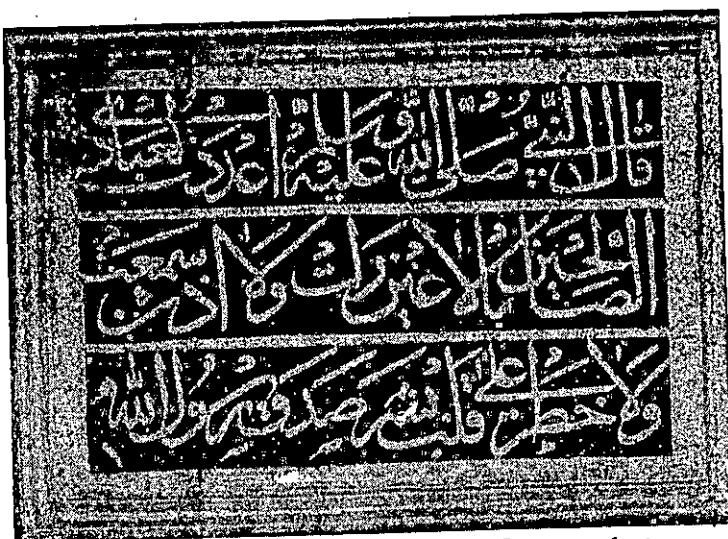 قال النبي صلى الله عليه وسلم أعددت لعبادي
الصالحين ما لا عين رأت ولا أذن سمعت
ولا خطر على قلب بشر صدق رسول الله